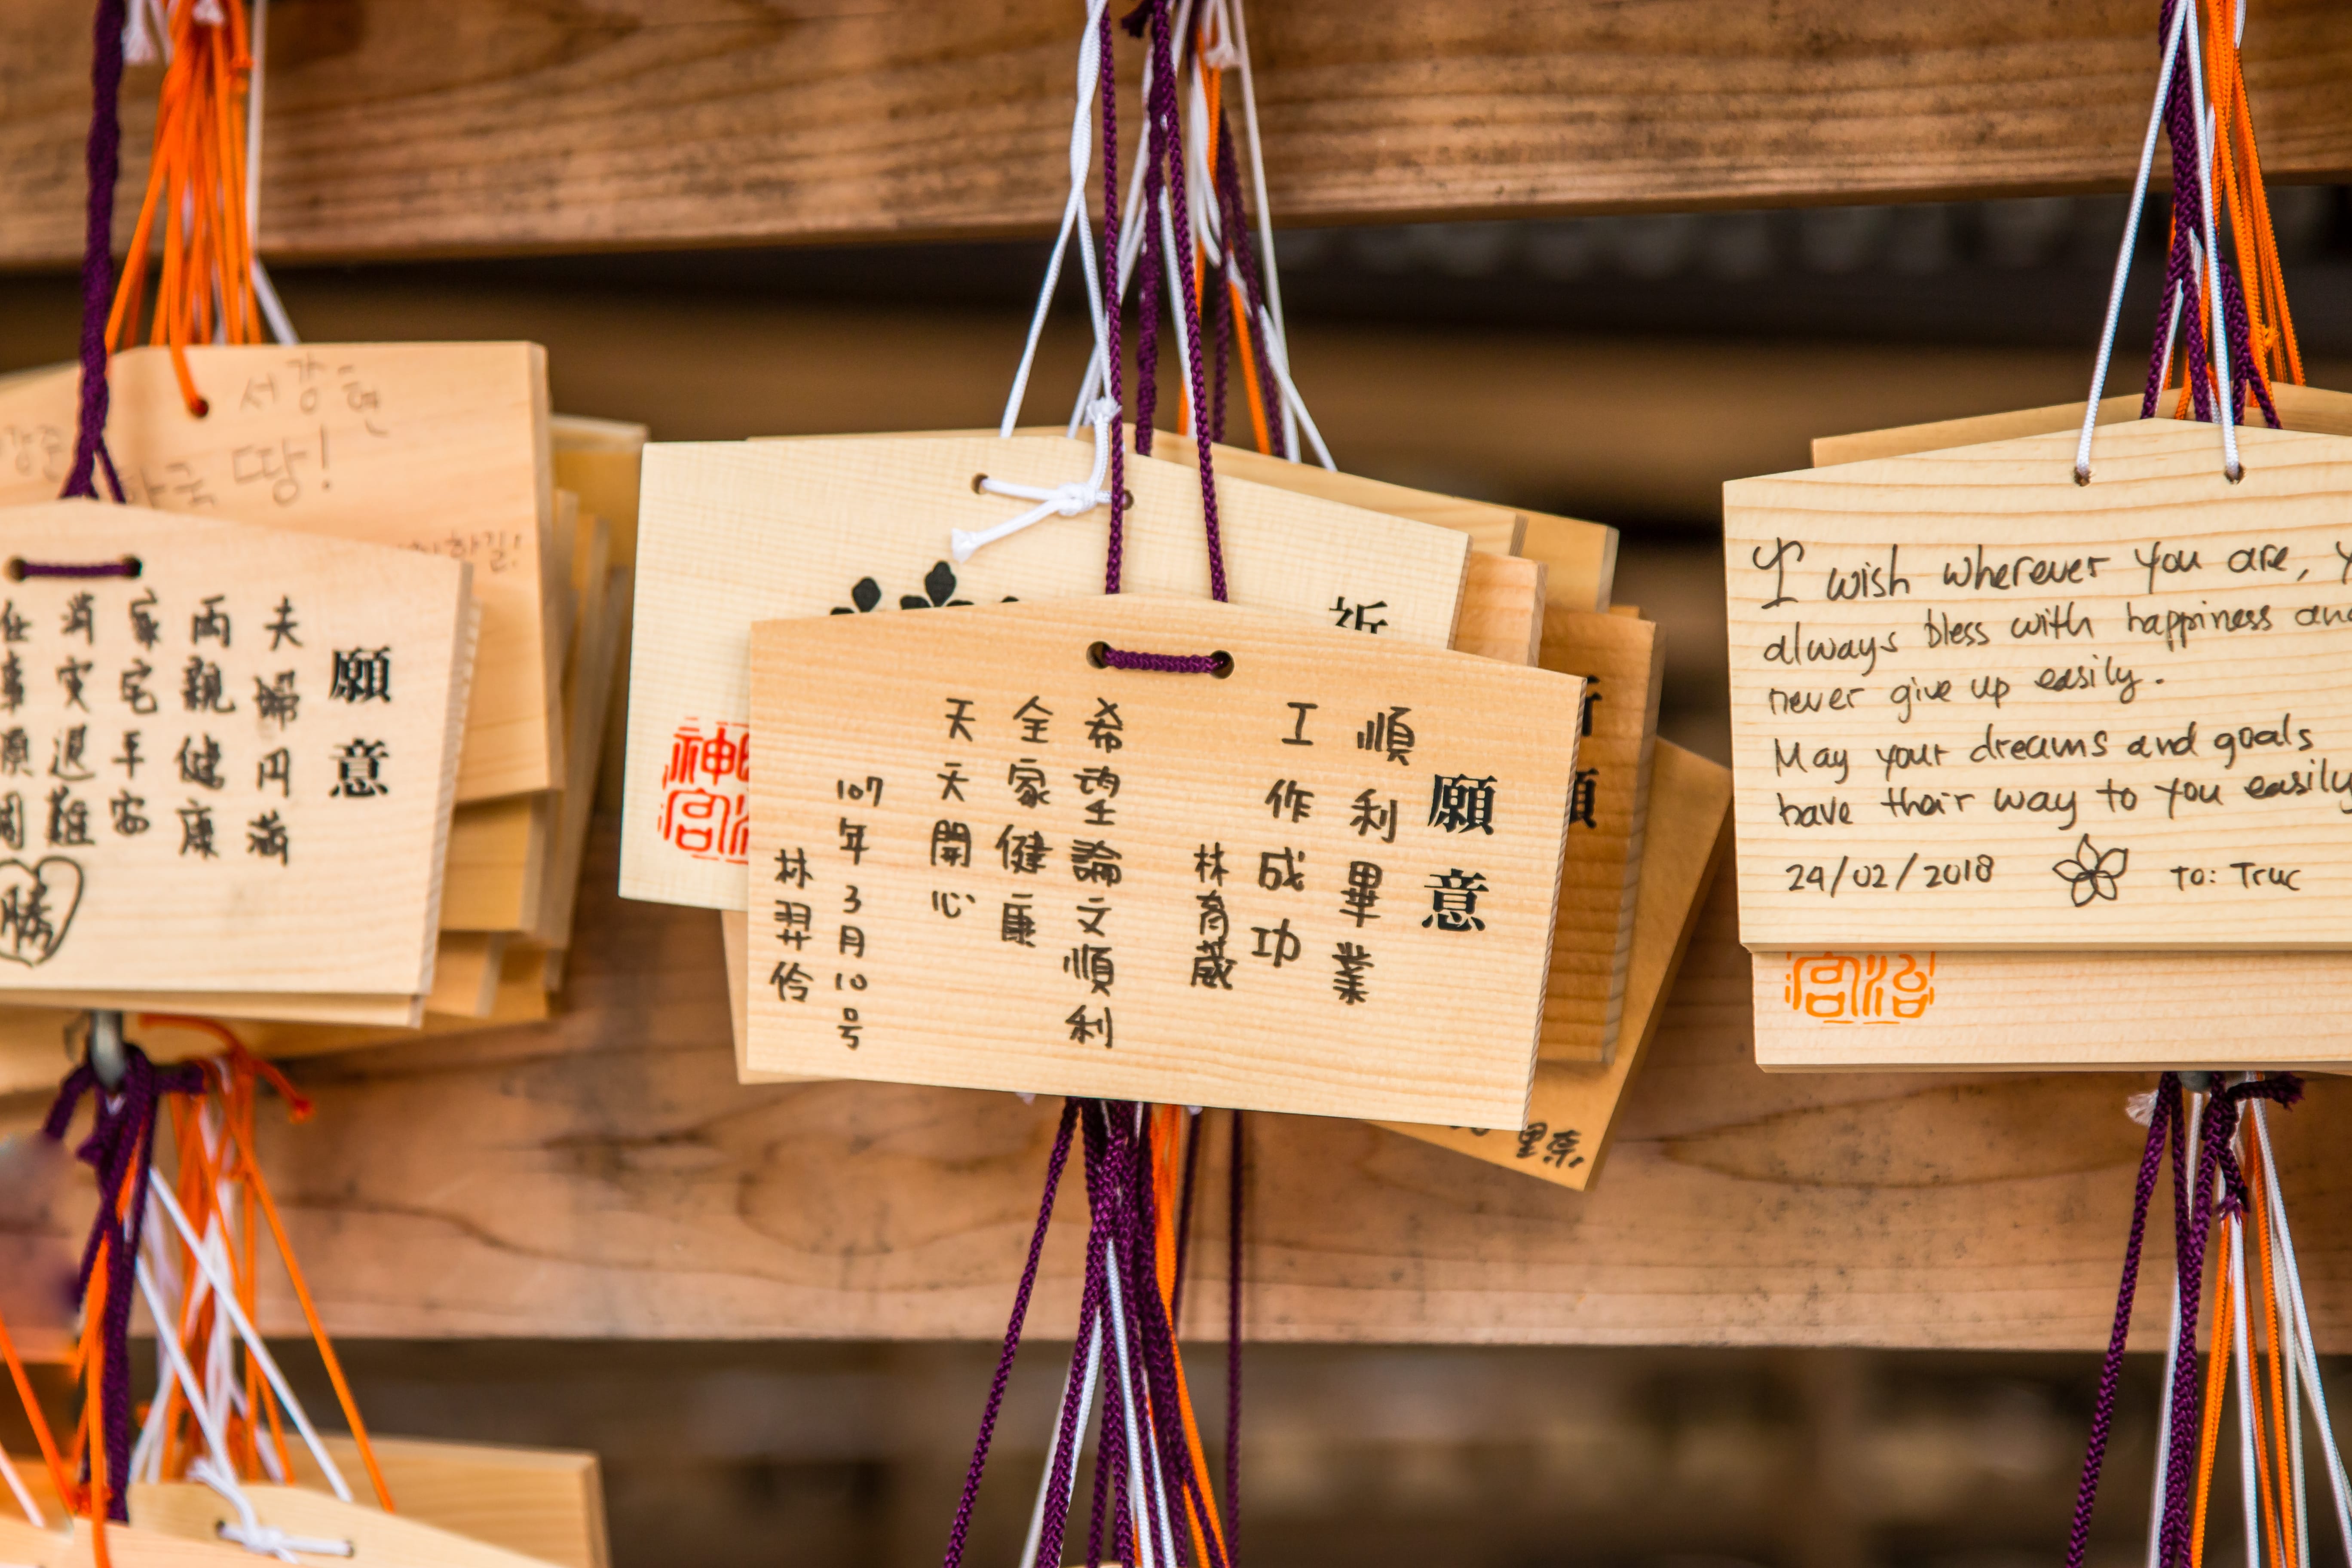 서강현
한국 땅!
願意
夫婦円満
両親健康
家宅平安
消災退難
勝
祈
神宮
願意
順利畢業
工作成功
林育葳
希望論文順利
全家健康
天天開心
107年3月10号
林羿伶
I wish wherever you are,
always bless with happiness and
never give up easily.
May your dreams and goals
have their way to you easily
24/02/2018 To: Truc